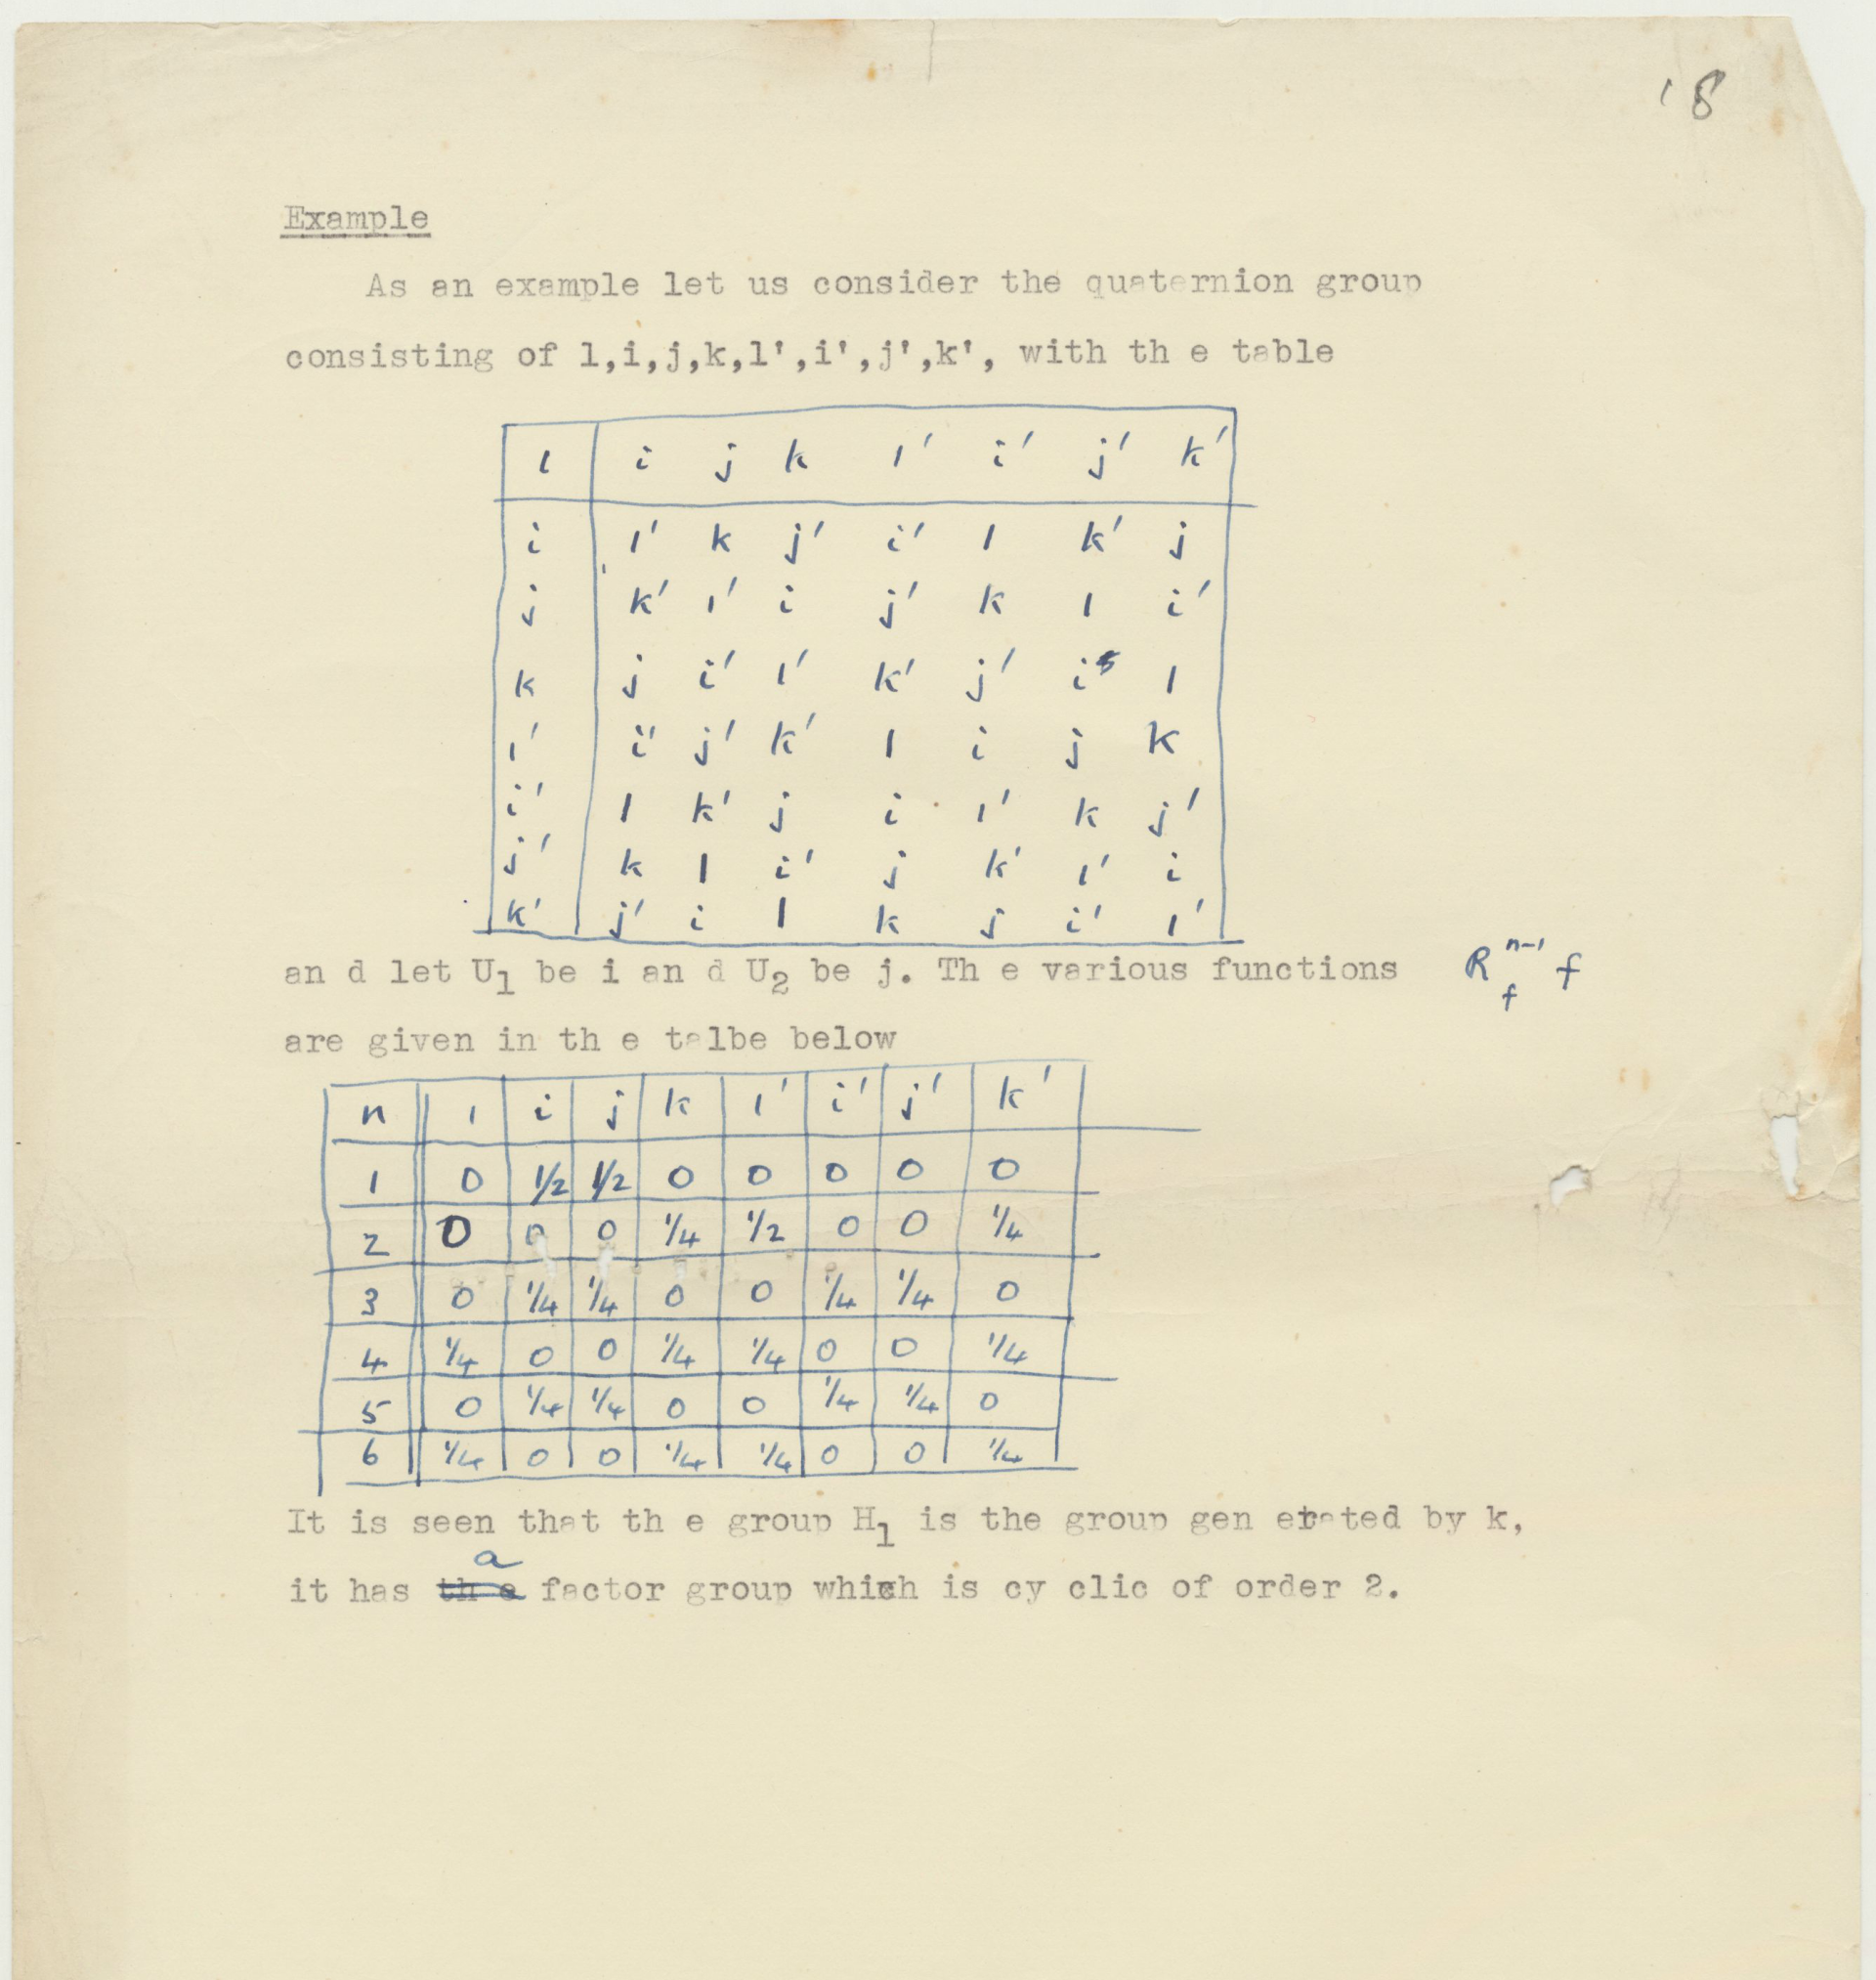 '8
Example
As an example let us consider the quaternion group
consisting of 1,i,j,k,1',i',j',k', with th e table
1 i j k 1' i' j' k'
i 1' k j' i' 1 k' j
j k' 1' i j' k 1 i'
k j i' 1' k' j' i 1
1' i' j' k' 1 i j k
i' 1 k' j i 1' k j'
j' k 1 i' j k' 1' i
k' j' i 1 k j i' 1'
an d let U1 be i an d U2 be j. Th e various functions R_f^{n-1} f
are given in th e talbe below
n 1 i j k 1' i' j' k'
1 0 1/2 1/2 0 0 0 0 0
2 0 0 0 1/4 1/2 0 0 1/4
3 0 1/4 1/4 0 0 1/4 1/4 0
4 1/4 0 0 1/4 1/4 0 0 1/4
5 0 1/4 1/4 0 0 1/4 1/4 0
6 1/4 0 0 1/4 1/4 0 0 1/4
It is seen that th e group H1 is the group gen erated by k,
a
it has th e factor group which is cy clic of order 2.